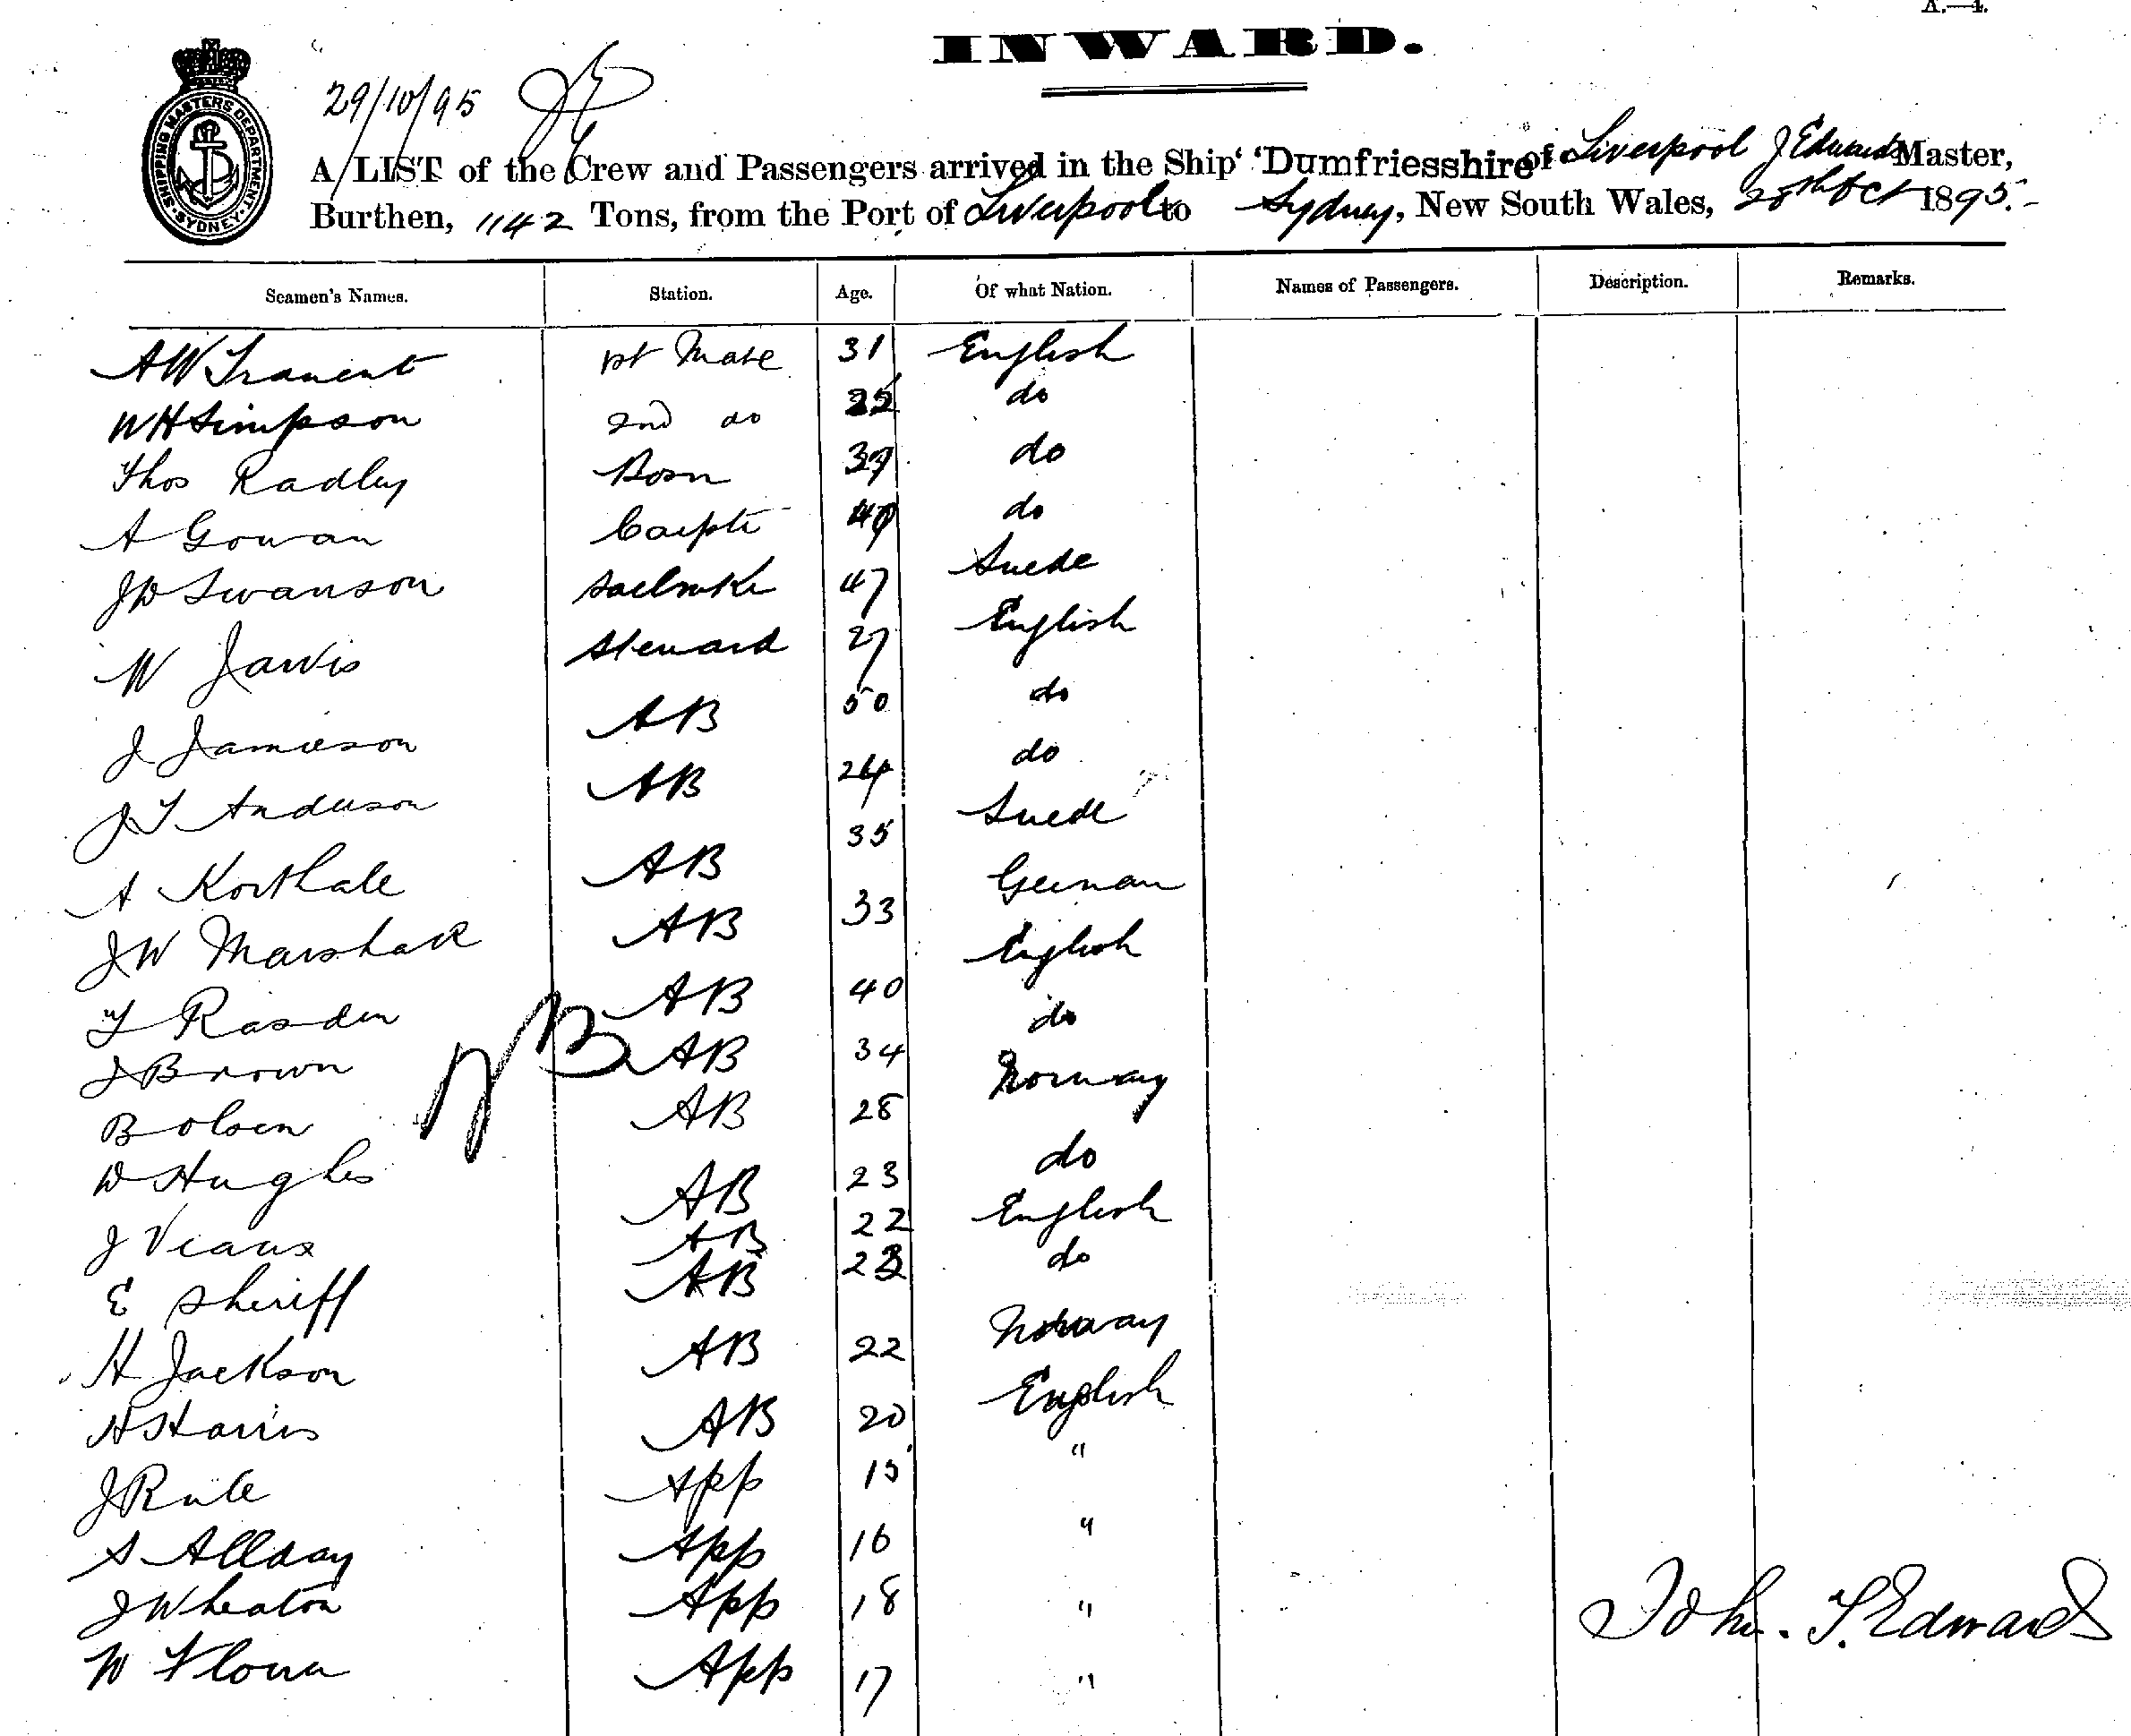 A.—4.
INWARD.
SHIPPING MASTERS DEPARTMENT. SYDNEY.
29/10/95
A LIST of the Crew and Passengers arrived in the Ship 'Dumfriesshire of Liverpool J Edwards Master,
Burthen, 1142 Tons, from the Port of Liverpool to Sydney, New South Wales, 28th Oct 1895.-
Seamen's Names. Station. Age. Of what Nation. Names of Passengers. Description. Remarks.
A W Tranent 1st Mate 31 English
W H Simpson 2nd do do
Thos Radley Bosn do
A Gowan Carptr do
J D Swanson Sailmkr 47 Swede
W Jarvis Steward 27 English
J Jamieson AB 50 do
J T Anderson AB 24 do
A Korthale AB 35 Swede
J W Marshall AB 33 German
T Rasden AB 40 English
J Brown AB 34 do
B Olsen AB 28 Norway
D Hughes AB 23 do
J Viaux AB 22 English
E Sheriff AB 23 do
H Jackson AB 22 Norway
H Harris AB 20 English
NB
J Rule App 15 "
S Allday App 16 "
J Wheaton App 18 "
W Flower App 17 "
John. T. Edwards